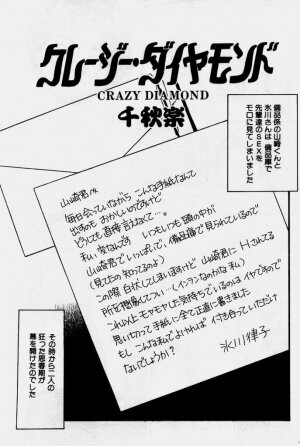 クレージー・ダイヤモンド
CRAZY DIAMOND
千秋楽
備品係の山崎くんと
氷川さんは 備品庫で
先輩達のSEXを
モロに見てしまいました
山崎君へ
毎日会っていながら こんな手紙なんて
出すのも おかしいのですけど
どうしても 直接 言えなくて…。
私、変なんです いつもいつも 頭の中が
山崎君で いっぱいで、備品庫で 見られているので
(見てたの 知ってるのよ)
この際 白状してしまいますけど 山崎君に Hされてる
所を想像してつい…(インランなのかな私)
これ以上 モヤモヤした気持ちでいるのは イヤですので
思い切って 手紙に全て正直に書きました
もし こんな私でよければ 付き合っていただけ
ないでしょうか?
氷川律子
その時から二人の
狂った思春期が
幕を開けたのでした